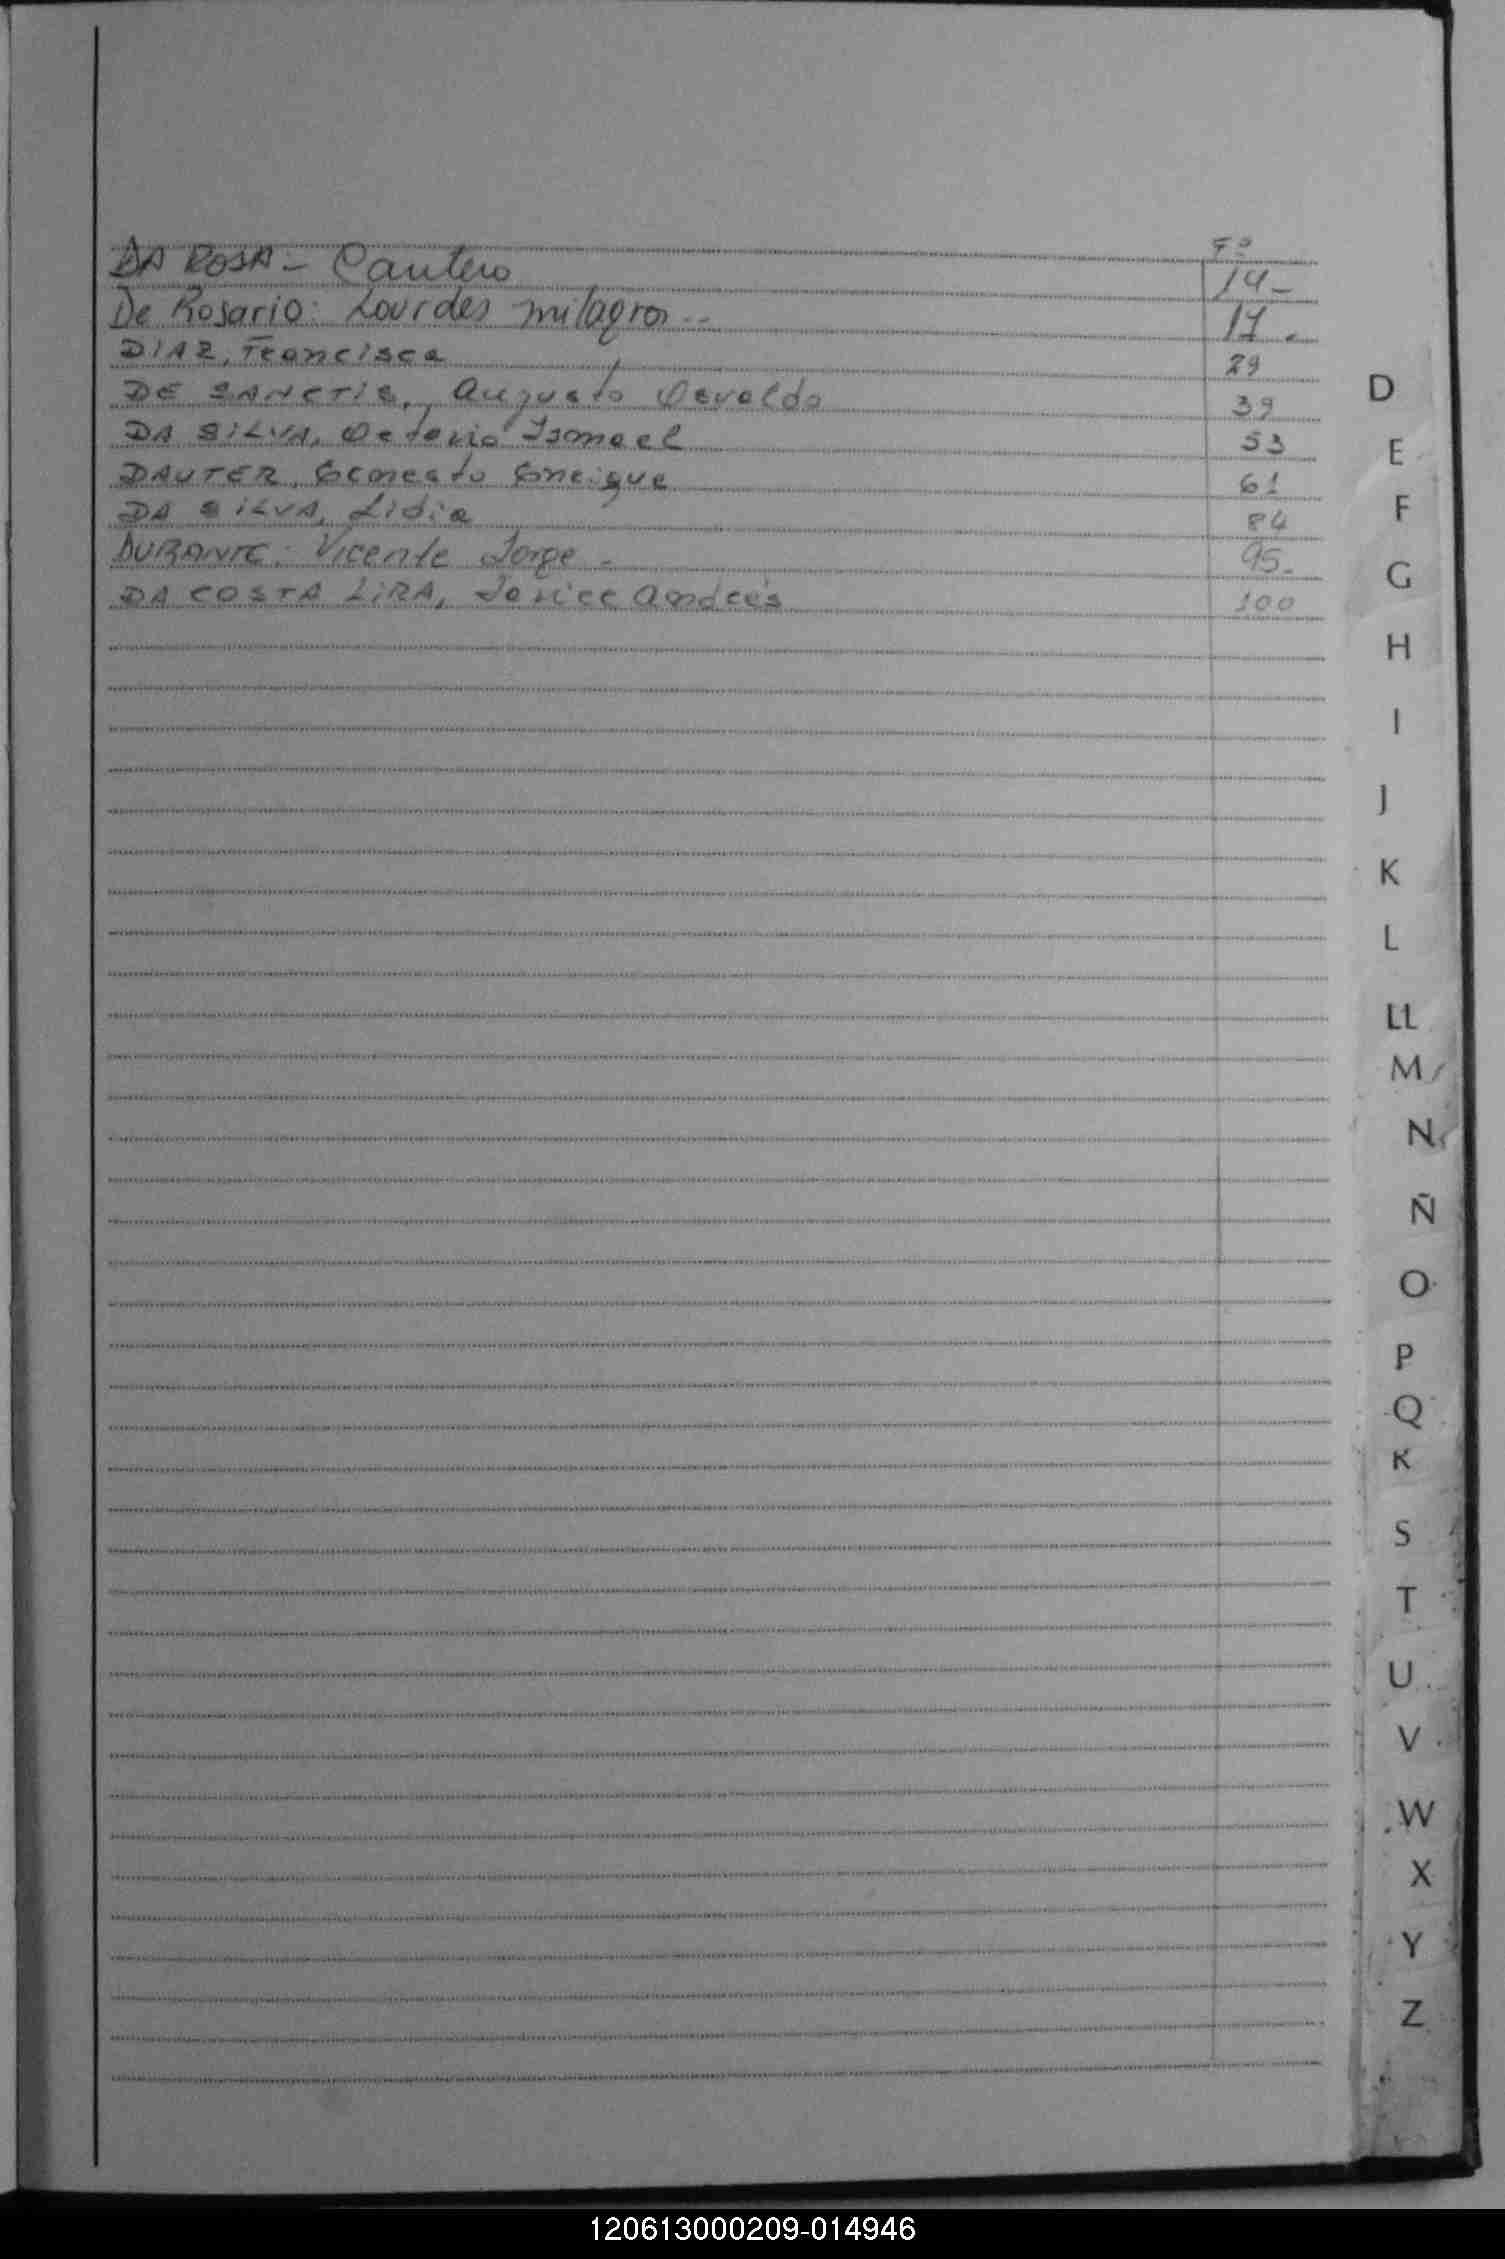 Fº
DA ROSA - Cantero 14-
De Rosario: Lourdes milagros.. 17.
DIAZ, Francisca 29
DE SANCTIS, Augusto Osvaldo 39
DA SILVA, Octavio Ismael 53
DAUTER, Ernesto Enrique 61
DA SILVA, Lidia 84
DURANTE: Vicente Jorge - 95-
DA COSTA LIRA, Andrés 100
D
E
F
G
H
I
J
K
L
LL
M
N
Ñ
O
P
Q
R
S
T
U
V
W
X
Y
Z
120613000209-014946